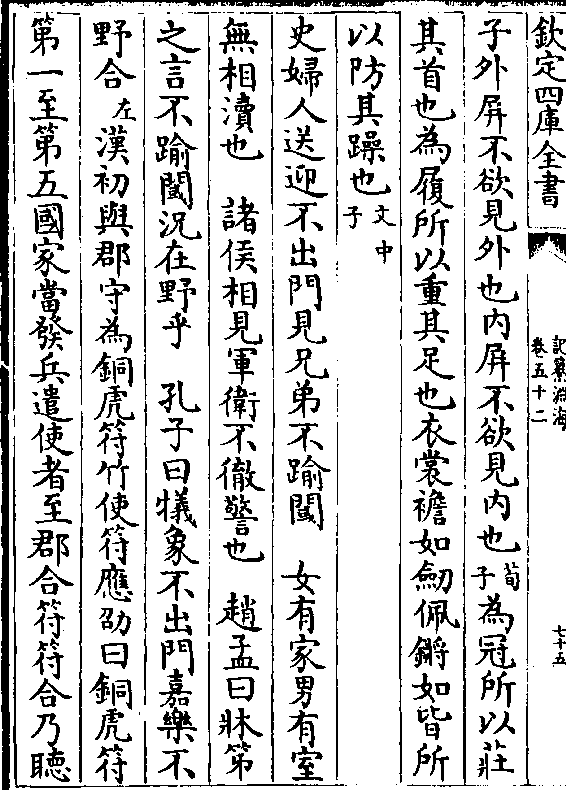 欽定四庫全書
記纂淵海
卷五十二
七十五
子外屏不欲見外也内屏不欲見内也荀子為冠所以莊
其首也為履所以重其足也衣裳襜如劒佩鏘如皆所
以防其躁也文中子
史婦人送迎不出門見兄弟不踰閾　女有家男有室
無相瀆也　諸侯相見軍衛不徹警也　趙孟曰牀第
之言不踰閾況在野乎　孔子曰犧象不出門嘉樂不
野合左漢初與郡守為銅虎符竹使符應劭曰銅虎符
第一至第五國家當發兵遣使者至郡合符符合乃聽